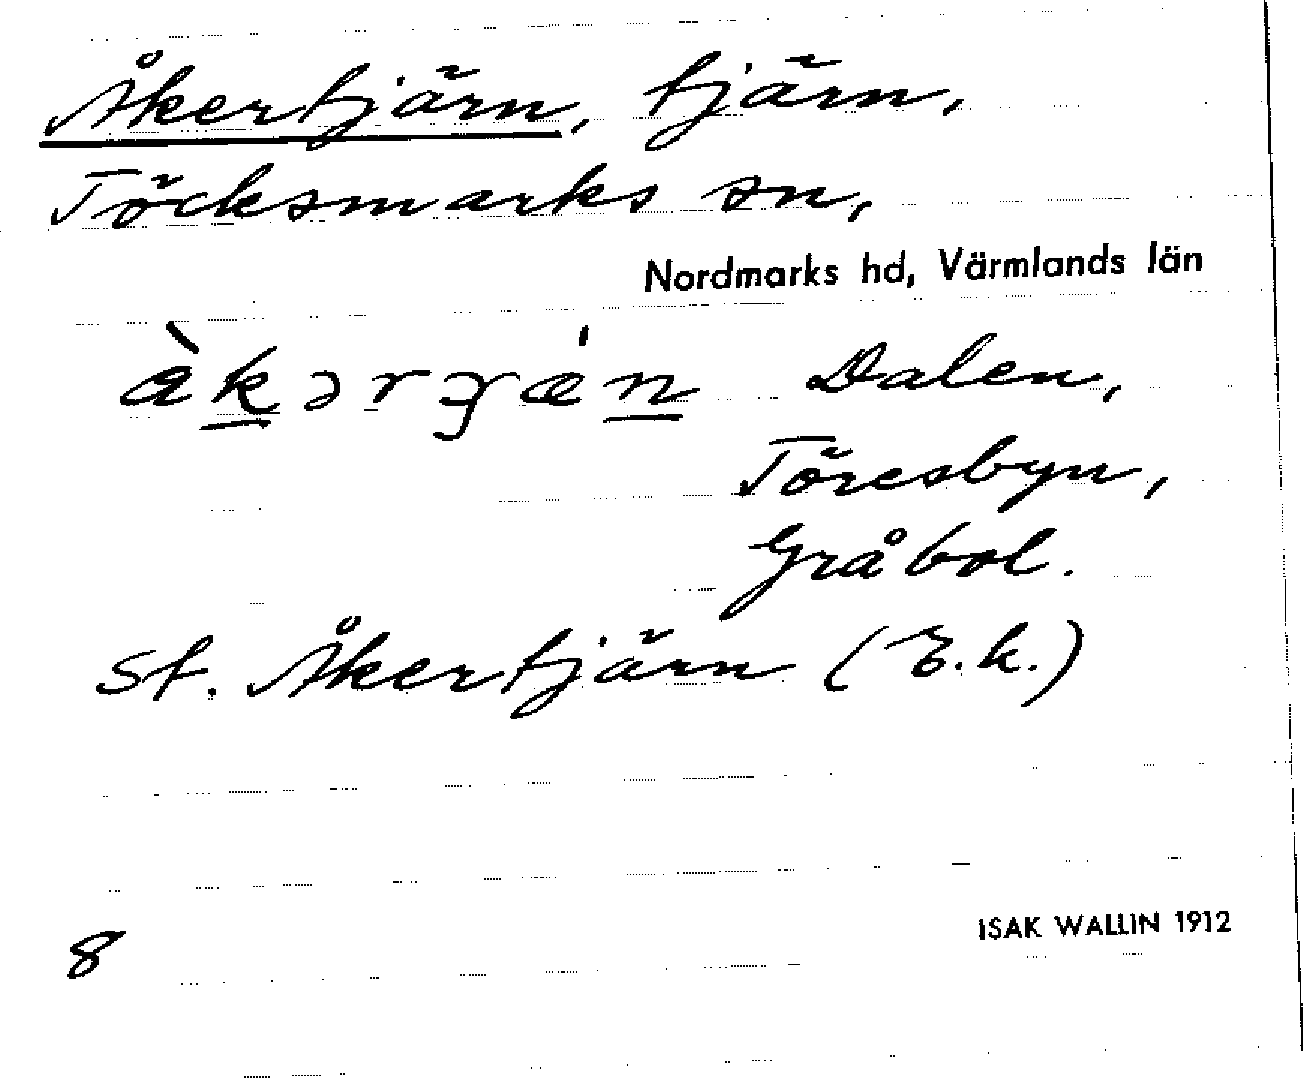 Åkertjärn, tjärn,
Töcksmarks sn,
Nordmarks hd, Värmlands län
Dalen,
Töresbyn,
Gråbol.
St. Åkertjärn (E.k.)
8
ISAK WALLIN 1912